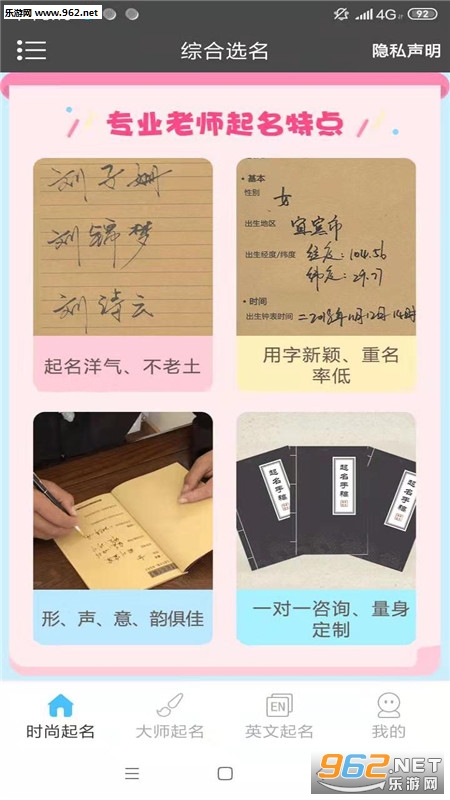 乐游网 www.962.net
4G
92
综合选名
隐私声明
专业老师起名特点
刘子姗
刘锦梦
刘诗云
• 基本
性别
女
出生地区
宜宾市
出生经度/纬度
经度:104.56
纬度:29.77
• 时间
出生钟表时间
二2018年11月12日14时
起名洋气、不老土
用字新颖、重名
率低
起名手稿
起名手稿
起名手稿
形、声、意、韵俱佳
一对一咨询、量身
定制
EN
时尚起名
大师起名
英文起名
我的
962.NET
乐游网